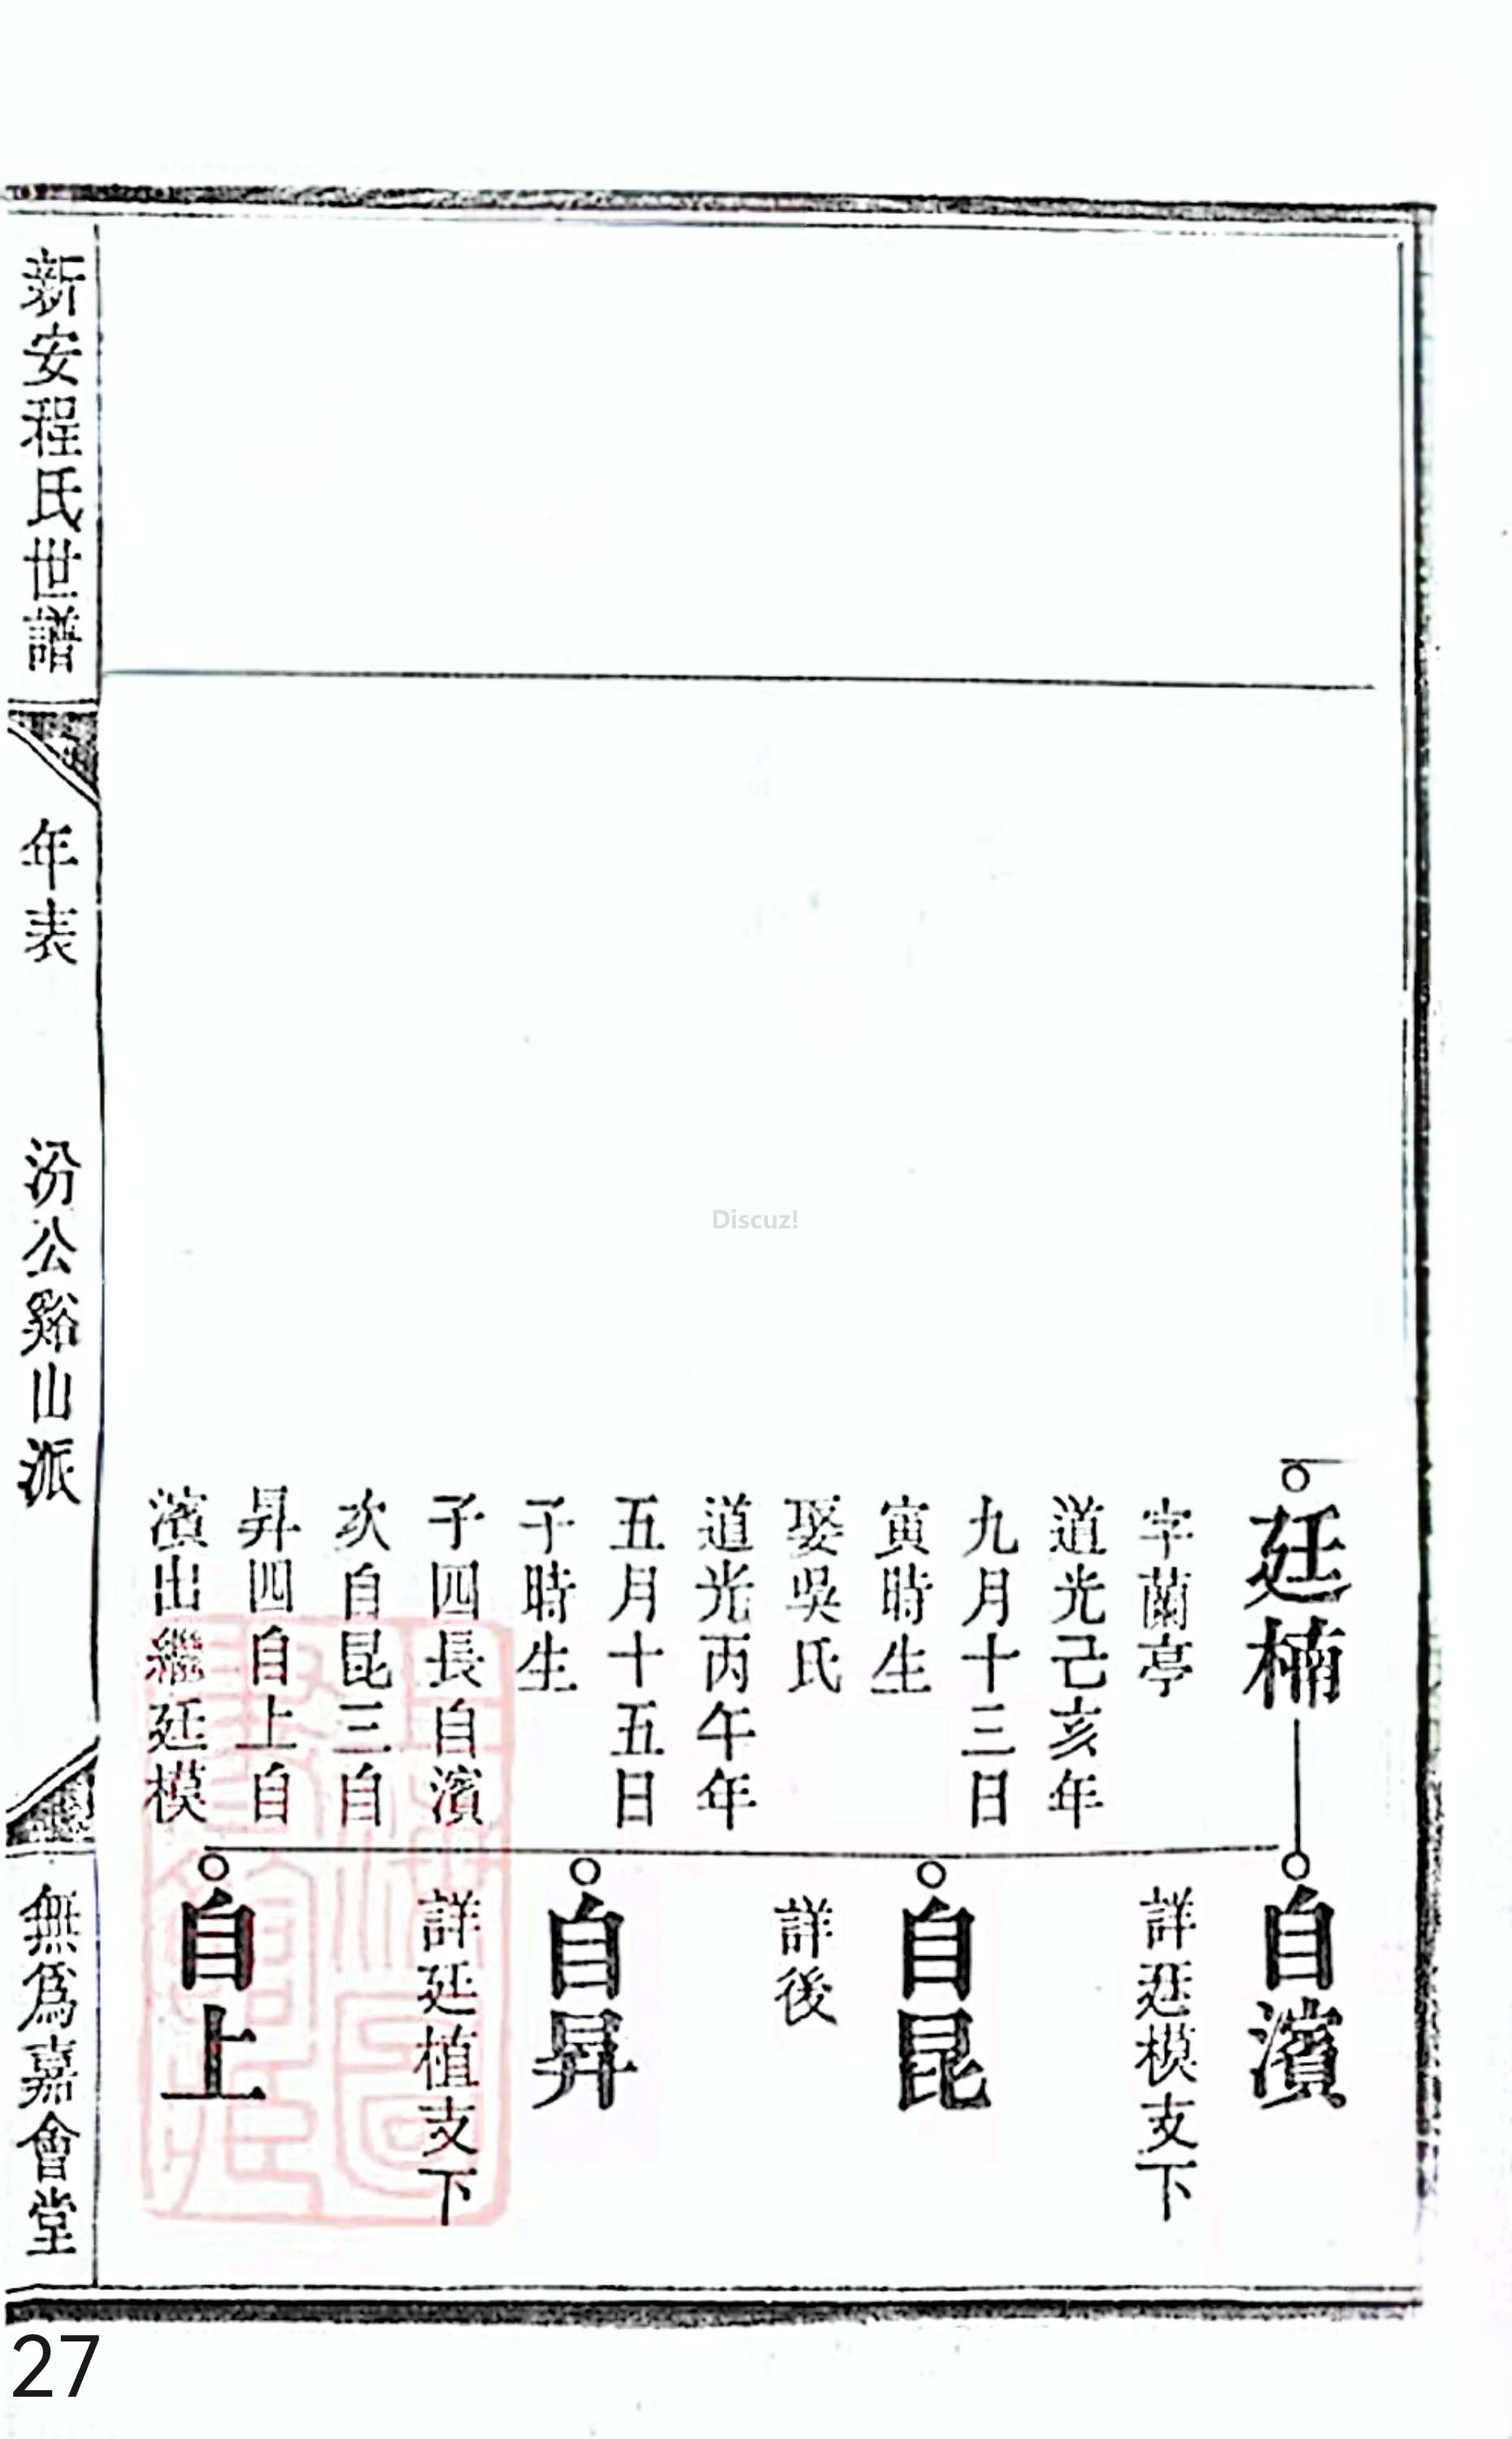 廷楠
字蘭亭
道光己亥年
九月十三日
寅時生
娶吳氏
道光丙午年
五月十五日
子時生
子四長自濱
次自昆三自
昇四自上自
濱出繼廷模
自濱
詳廷模支下
自昆
詳後
自昇
詳廷植支下
自上
新安程氏世譜
年表
汾公谿山派
無爲嘉會堂
Discuz!
27